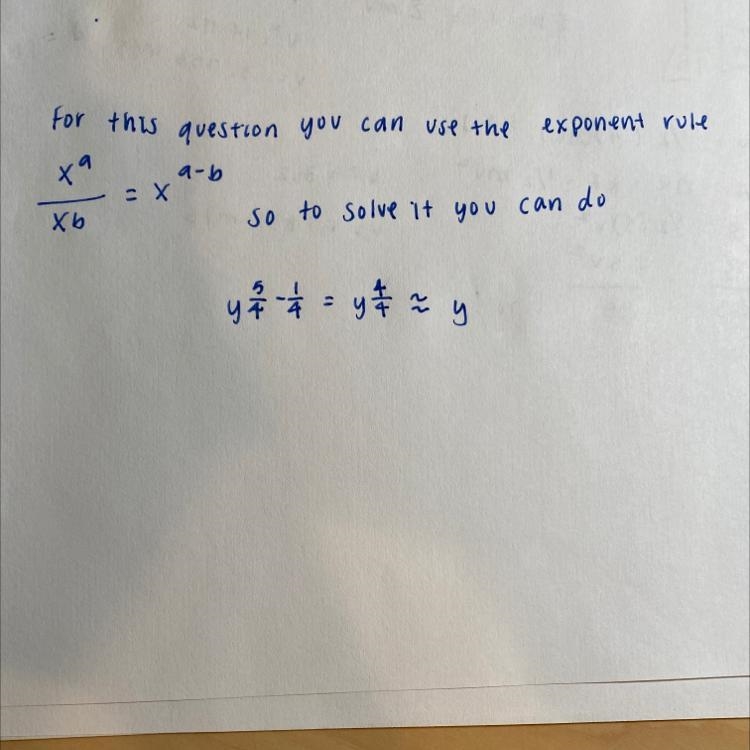 For this question you can use the exponent rule
x^a/xb = x^a-b so to solve it you can do
y^5/4-1/4 = y^4/4 ≈ y